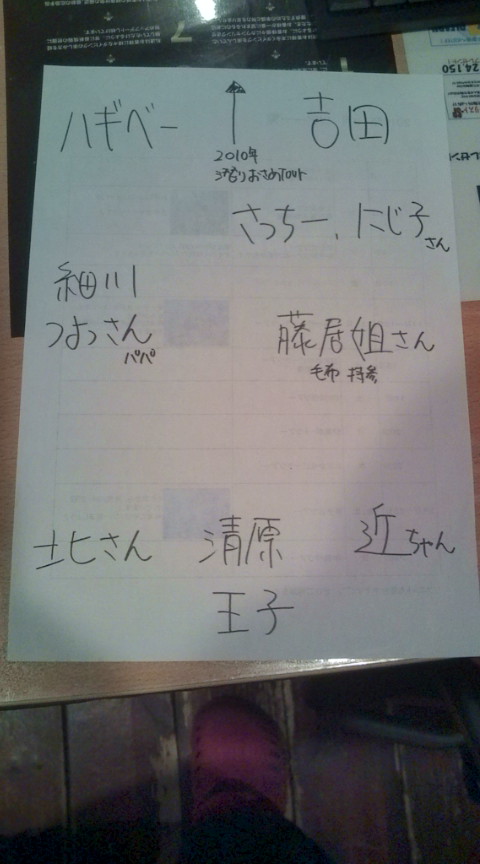 ハギベー
吉田
2010年
滑りおさめTOUR
さっちー、にじ子さん
細川
つよっさん
パパ
藤居姐さん
毛布 持参
北さん
清原
近ちゃん
王子
24,150